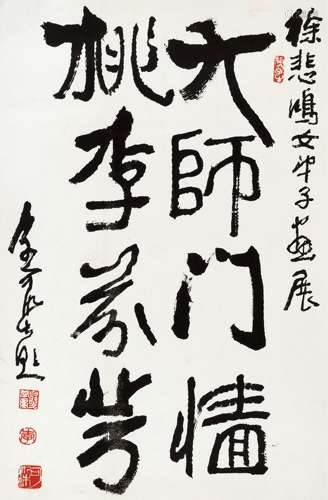 徐悲鴻女弟子畫展
大師门墙
桃李芬芳